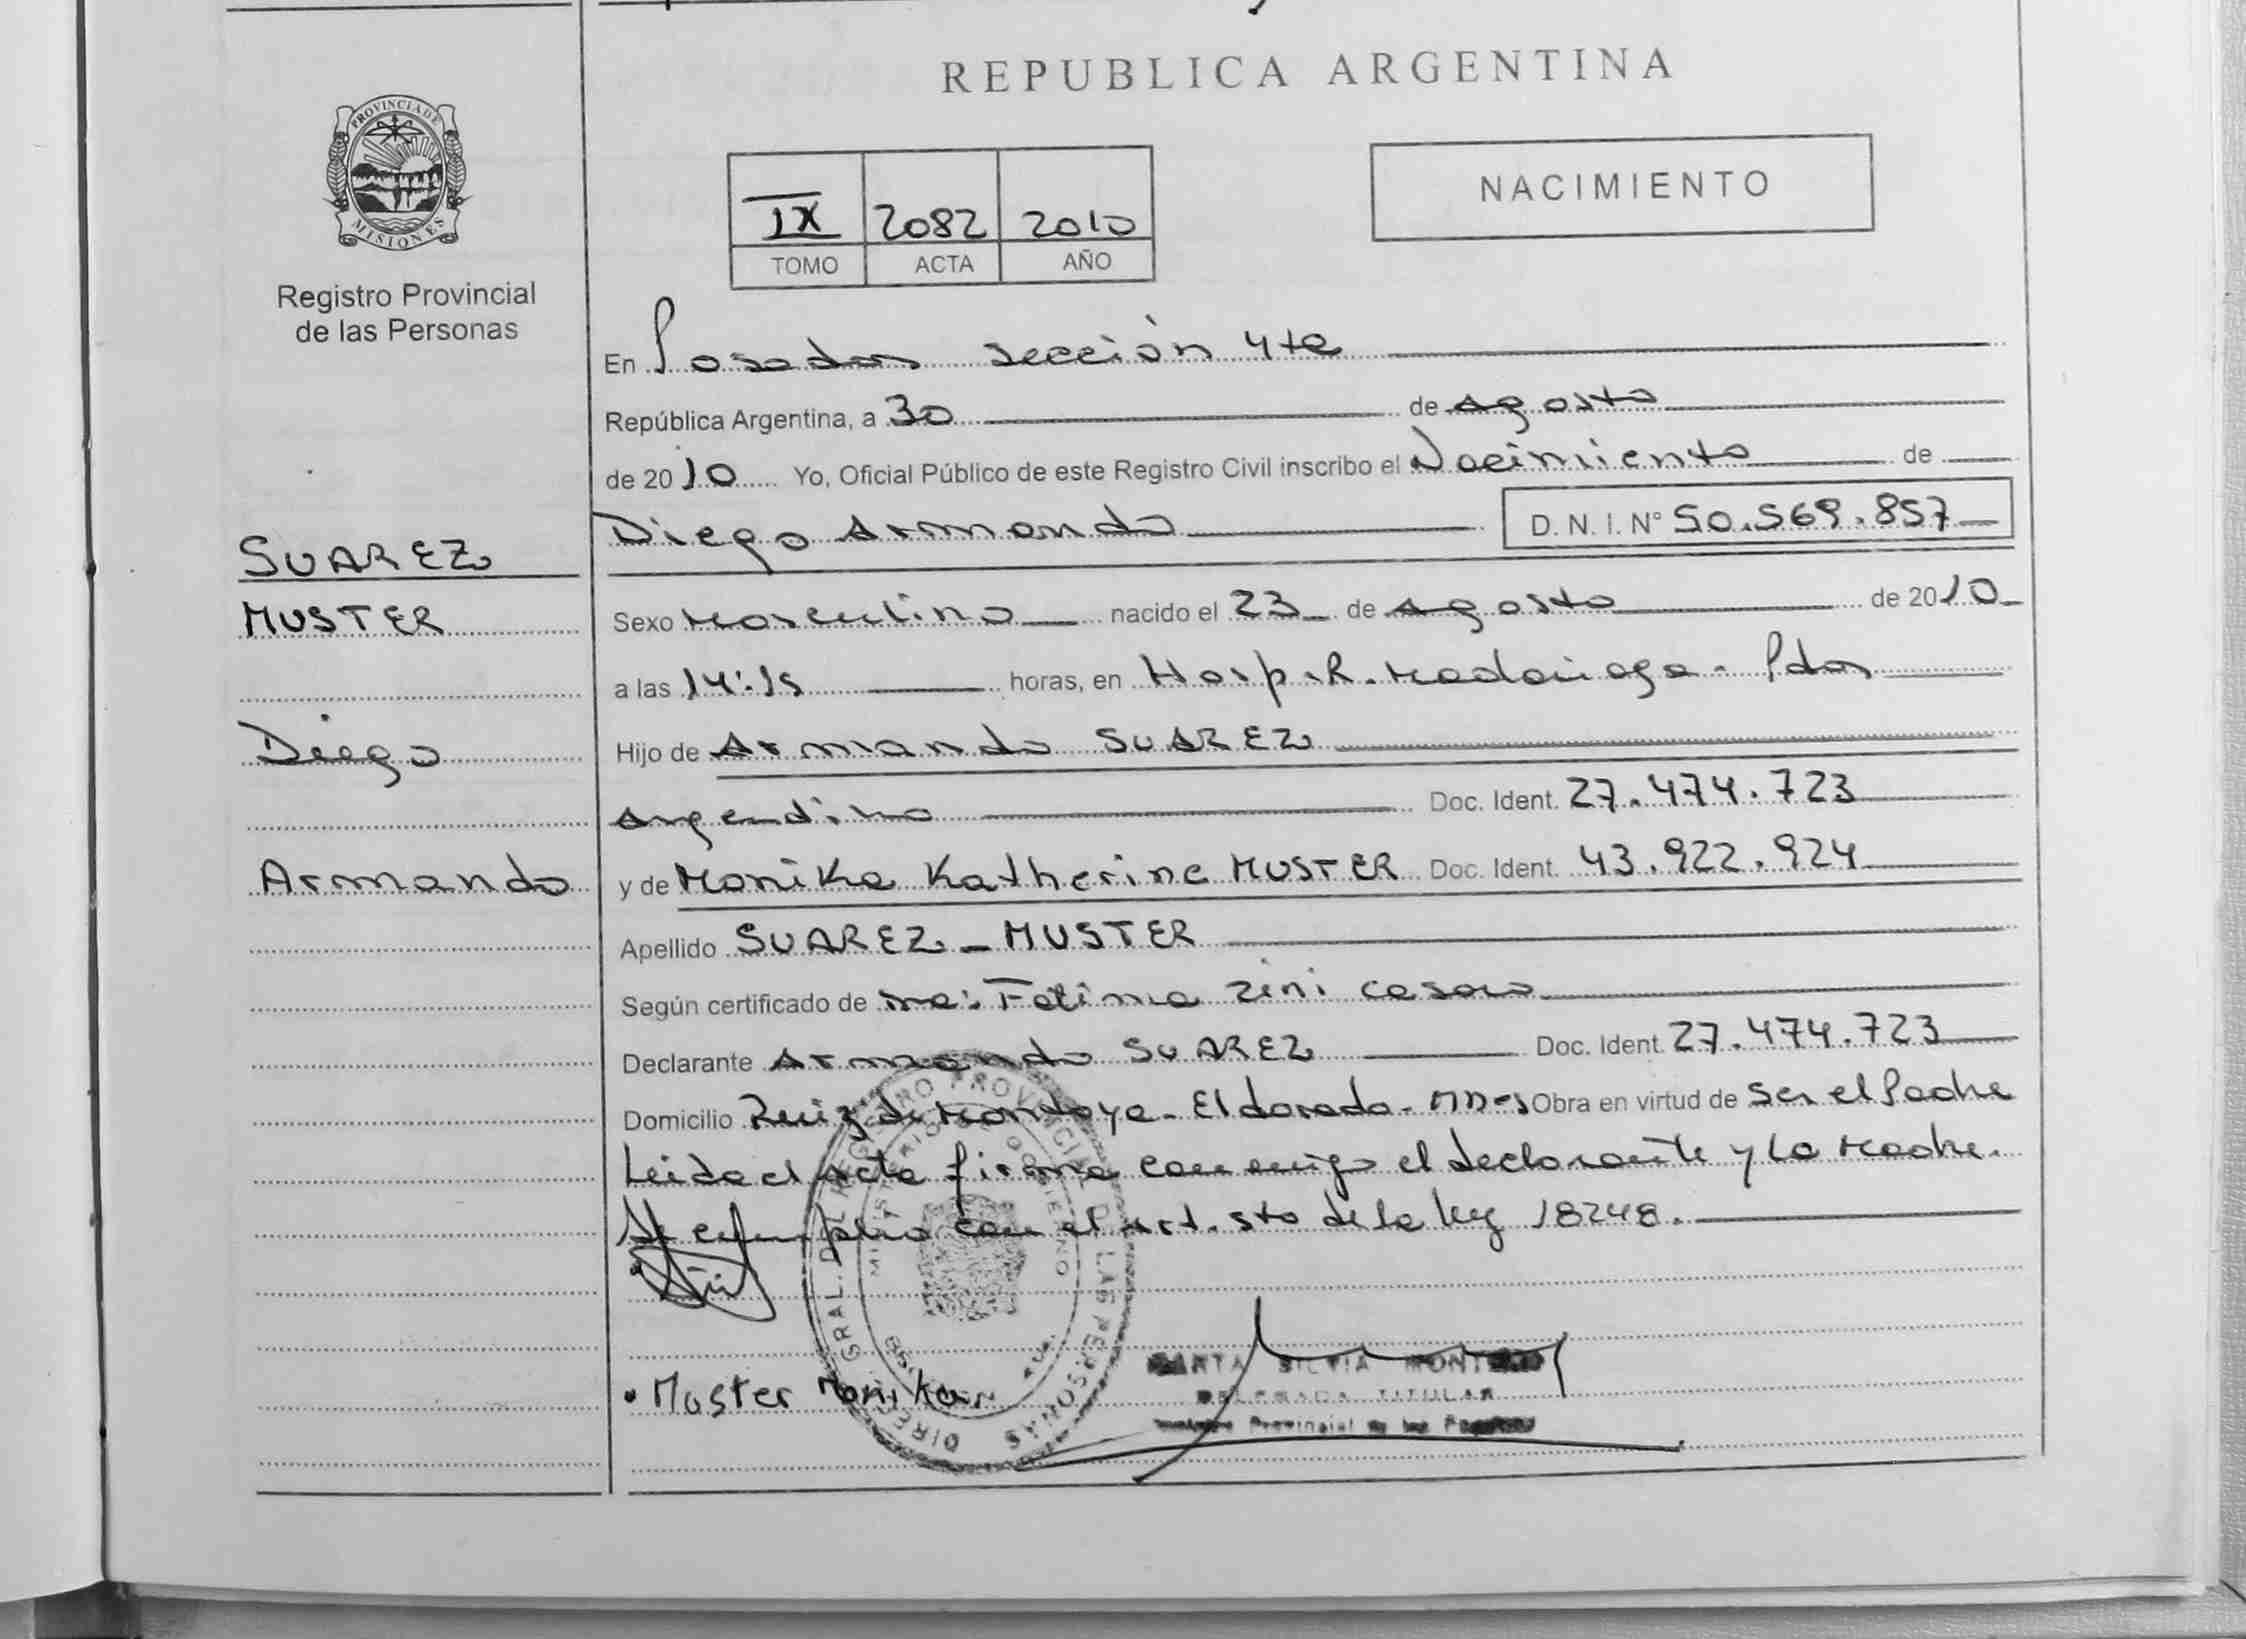 REPUBLICA ARGENTINA
PROVINCIA DE
MISIONES
Registro Provincial
de las Personas
IX 2082 2010
TOMO ACTA AÑO
NACIMIENTO
En Posadas sección 4ta
República Argentina, a 30 de agosto
de 2010 Yo, Oficial Público de este Registro Civil inscribo el Nacimiento de
Diego Armando D. N. I. N° 50.569.857
SUAREZ
MUSTER
Diego
Armando
Sexo Masculino nacido el 23 de agosto de 2010
a las 14:15 horas, en Hosp. R. Madariaga - Pdas
Hijo de Armando SUAREZ
argentino Doc. Ident. 27.474.723
y de Monika Katherine MUSTER Doc. Ident. 43.922.924
Apellido SUAREZ - MUSTER
Según certificado de Ma: Fatima Zini
Declarante Armando SUAREZ Doc. Ident. 27.474.723
Domicilio Ruiz de Montoya - Eldorado - Obra en virtud de ser el Padre
Leida el acta firma conmigo el declarante y la Madre.
con el art. 5to de la ley 18248.
DIREC. GRAL. DEL REGISTRO PROVINCIAL DE LAS PERSONAS
MINISTERIO GOBIERNO
Muster Monika
MARTA SILVIA
DELEGADA TITULAR
Provincial de las Personas